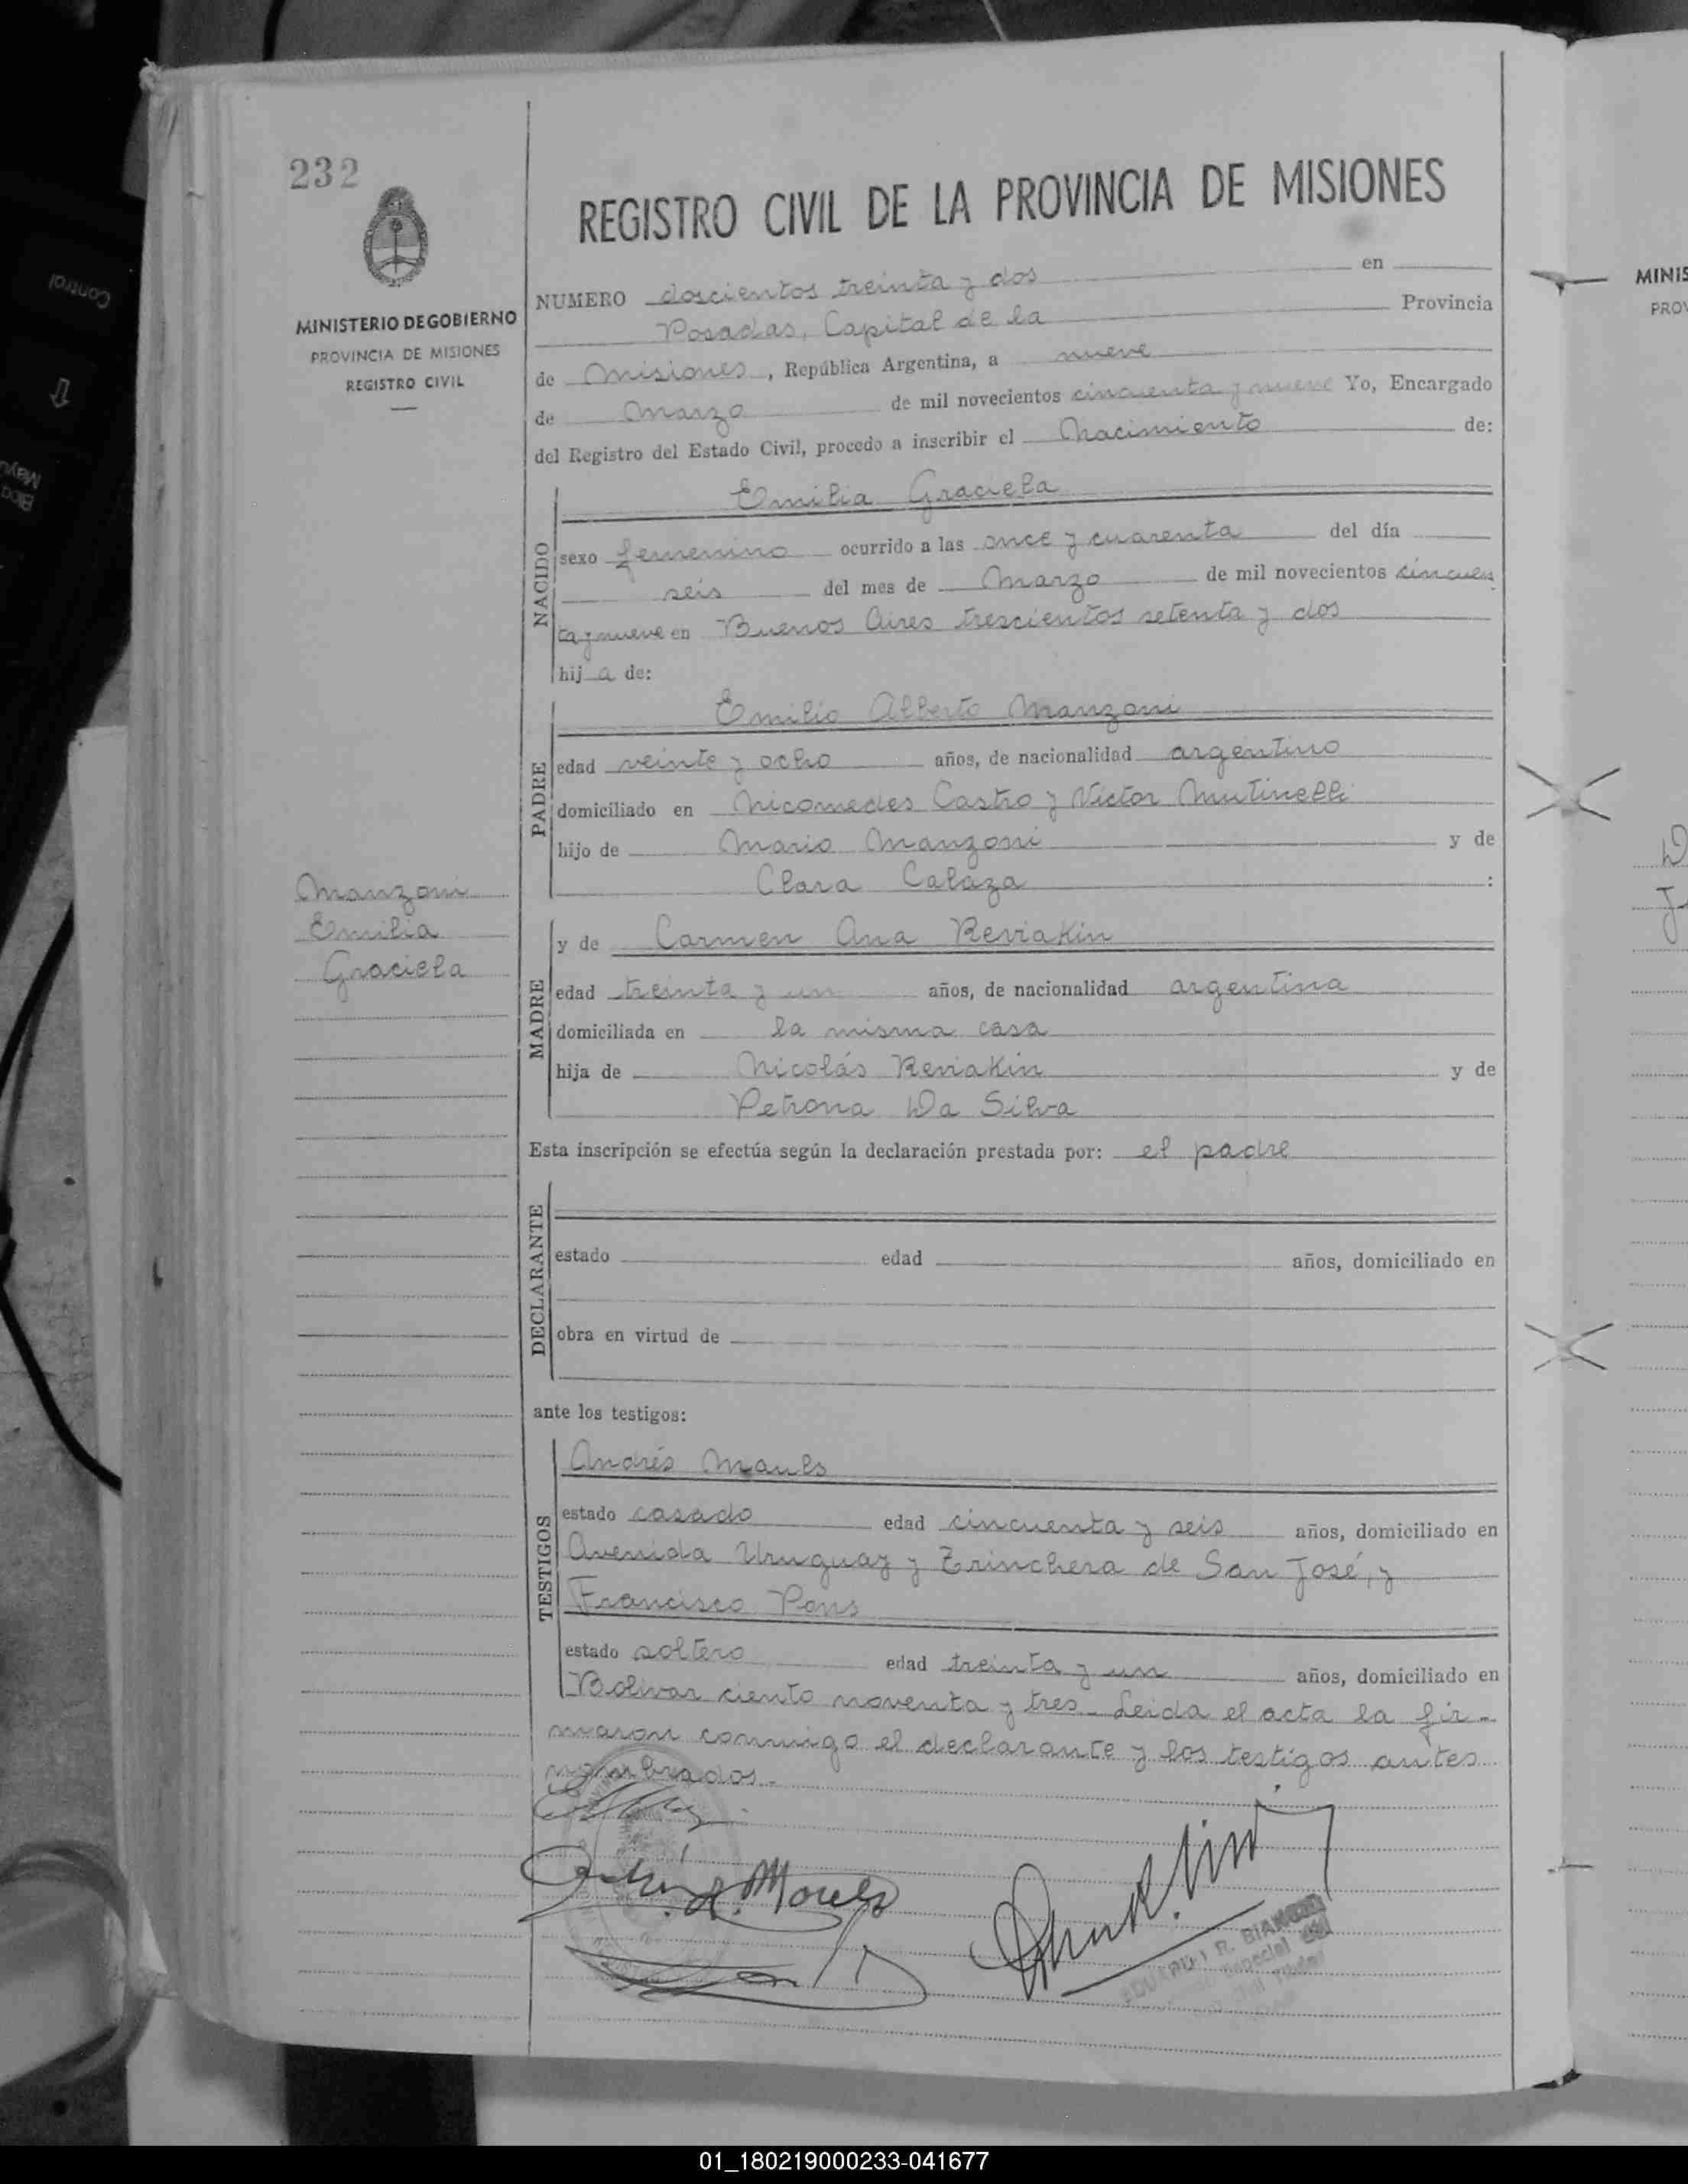 232
REGISTRO CIVIL DE LA PROVINCIA DE MISIONES
MINISTERIO DE GOBIERNO
PROVINCIA DE MISIONES
REGISTRO CIVIL
NUMERO doscientos treinta y dos en
Posadas, Capital de la Provincia
de Misiones, República Argentina, a nueve
de Marzo de mil novecientos cincuenta y nueve Yo, Encargado
del Registro del Estado Civil, procedo a inscribir el Nacimiento de:
NACIDO
Emilia Graciela
sexo femenino ocurrido a las once y cuarenta del día
seis del mes de Marzo de mil novecientos cincuen
ta y nueve en Buenos Aires trescientos setenta y dos
hij a de:
PADRE
Emilio Alberto Manzoni
edad veinte y ocho años, de nacionalidad argentino
domiciliado en Nicomedes Castro y Victor Mutinelli
hijo de Mario Manzoni y de
Clara Calaza :
Manzoni
Emilia
Graciela
MADRE
y de Carmen Ana Reviakin
edad treinta y un años, de nacionalidad argentina
domiciliada en la misma casa
hija de Nicolás Reviakin y de
Petrona Da Silva
Esta inscripción se efectúa según la declaración prestada por: el padre
DECLARANTE
estado edad años, domiciliado en
obra en virtud de
ante los testigos:
TESTIGOS
Andrés Mauls
estado casado edad cincuenta y seis años, domiciliado en
Avenida Uruguay y Trinchera de San José, y
Francisco Pons
estado soltero edad treinta y un años, domiciliado en
Bolivar ciento noventa y tres - Leida el acta la fir-
maron conmigo el declarante y los testigos antes
nombrados.-
R. BIANCHI
Control
MINIS
PROV
01_180219000233-041677